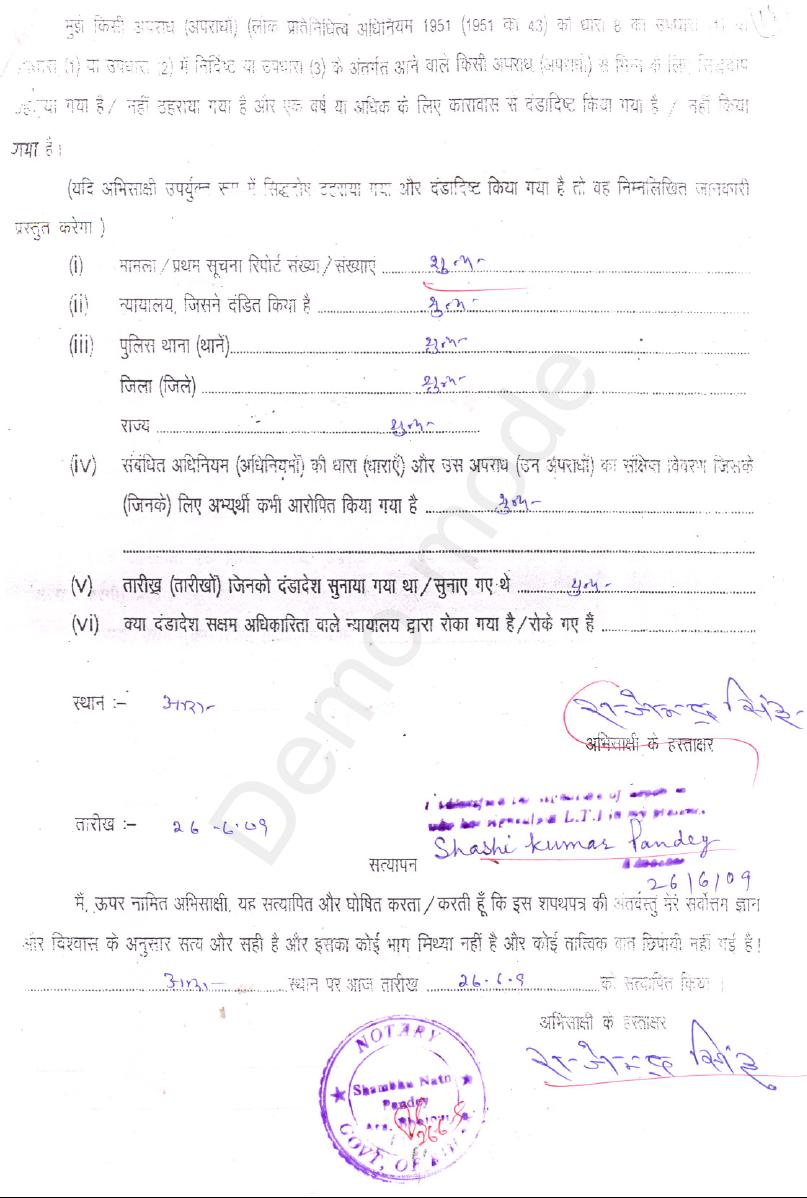 मुझे किसी अपराध (अपराधों) (लोक प्रतिनिधित्व अधिनियम 1951 (1951 का 43) की धारा 8 की उपधारा (1) या
(1) या उपधारा (2) में निर्दिष्ट या उपधारा (3) के अंतर्गत आने वाले किसी अपराध (अपराधों) से भिन्न के लिए सिद्धदोष
ठहराया गया है / नहीं ठहराया गया है और एक वर्ष या अधिक के लिए कारावास से दंडादिष्ट किया गया है / नहीं किया
गया है।
(यदि अभिसाक्षी उपर्युक्त रूप में सिद्धदोष ठहराया गया और दंडादिष्ट किया गया है तो वह निम्नलिखित जानकारी
प्रस्तुत करेगा )
(i) मामला / प्रथम सूचना रिपोर्ट संख्या / संख्याएं शून्य
(ii) न्यायालय, जिसने दंडित किया है शून्य
(iii) पुलिस थाना (थानें) शून्य
जिला (जिले) शून्य
राज्य शून्य
(iv) संबंधित अधिनियम (अधिनियमों) की धारा (धाराएँ) और उस अपराध (उन अपराधों) का संक्षिप्त विवरण जिसके
(जिनके) लिए अभ्यर्थी कभी आरोपित किया गया है शून्य
(v) तारीख (तारीखों) जिनको दंडादेश सुनाया गया था / सुनाए गए थे शून्य
(vi) क्या दंडादेश सक्षम अधिकारिता वाले न्यायालय द्वारा रोका गया है / रोके गए हैं
स्थान :- आरा
राजेन्द्र सिंह
अभिसाक्षी के हस्ताक्षर
L.T.I in my presence.
तारीख :- 26-6-09
Shashi Kumar Pandey
सत्यापन
26/6/09
मैं, ऊपर नामित अभिसाक्षी, यह सत्यापित और घोषित करता / करती हूँ कि इस शपथपत्र की अंतर्वस्तु मेरे सर्वोत्तम ज्ञान
और विश्वास के अनुसार सत्य और सही है और इसका कोई भाग मिथ्या नहीं है और कोई तात्विक बात छिपायी नहीं गई है।
आरा स्थान पर आज तारीख 26.6.9 को सत्यापित किया।
अभिसाक्षी के हस्ताक्षर
राजेन्द्र सिंह
NOTARY
Shambhu Nath
Pandey
26-6-9
GOVT. OF
Demo mode